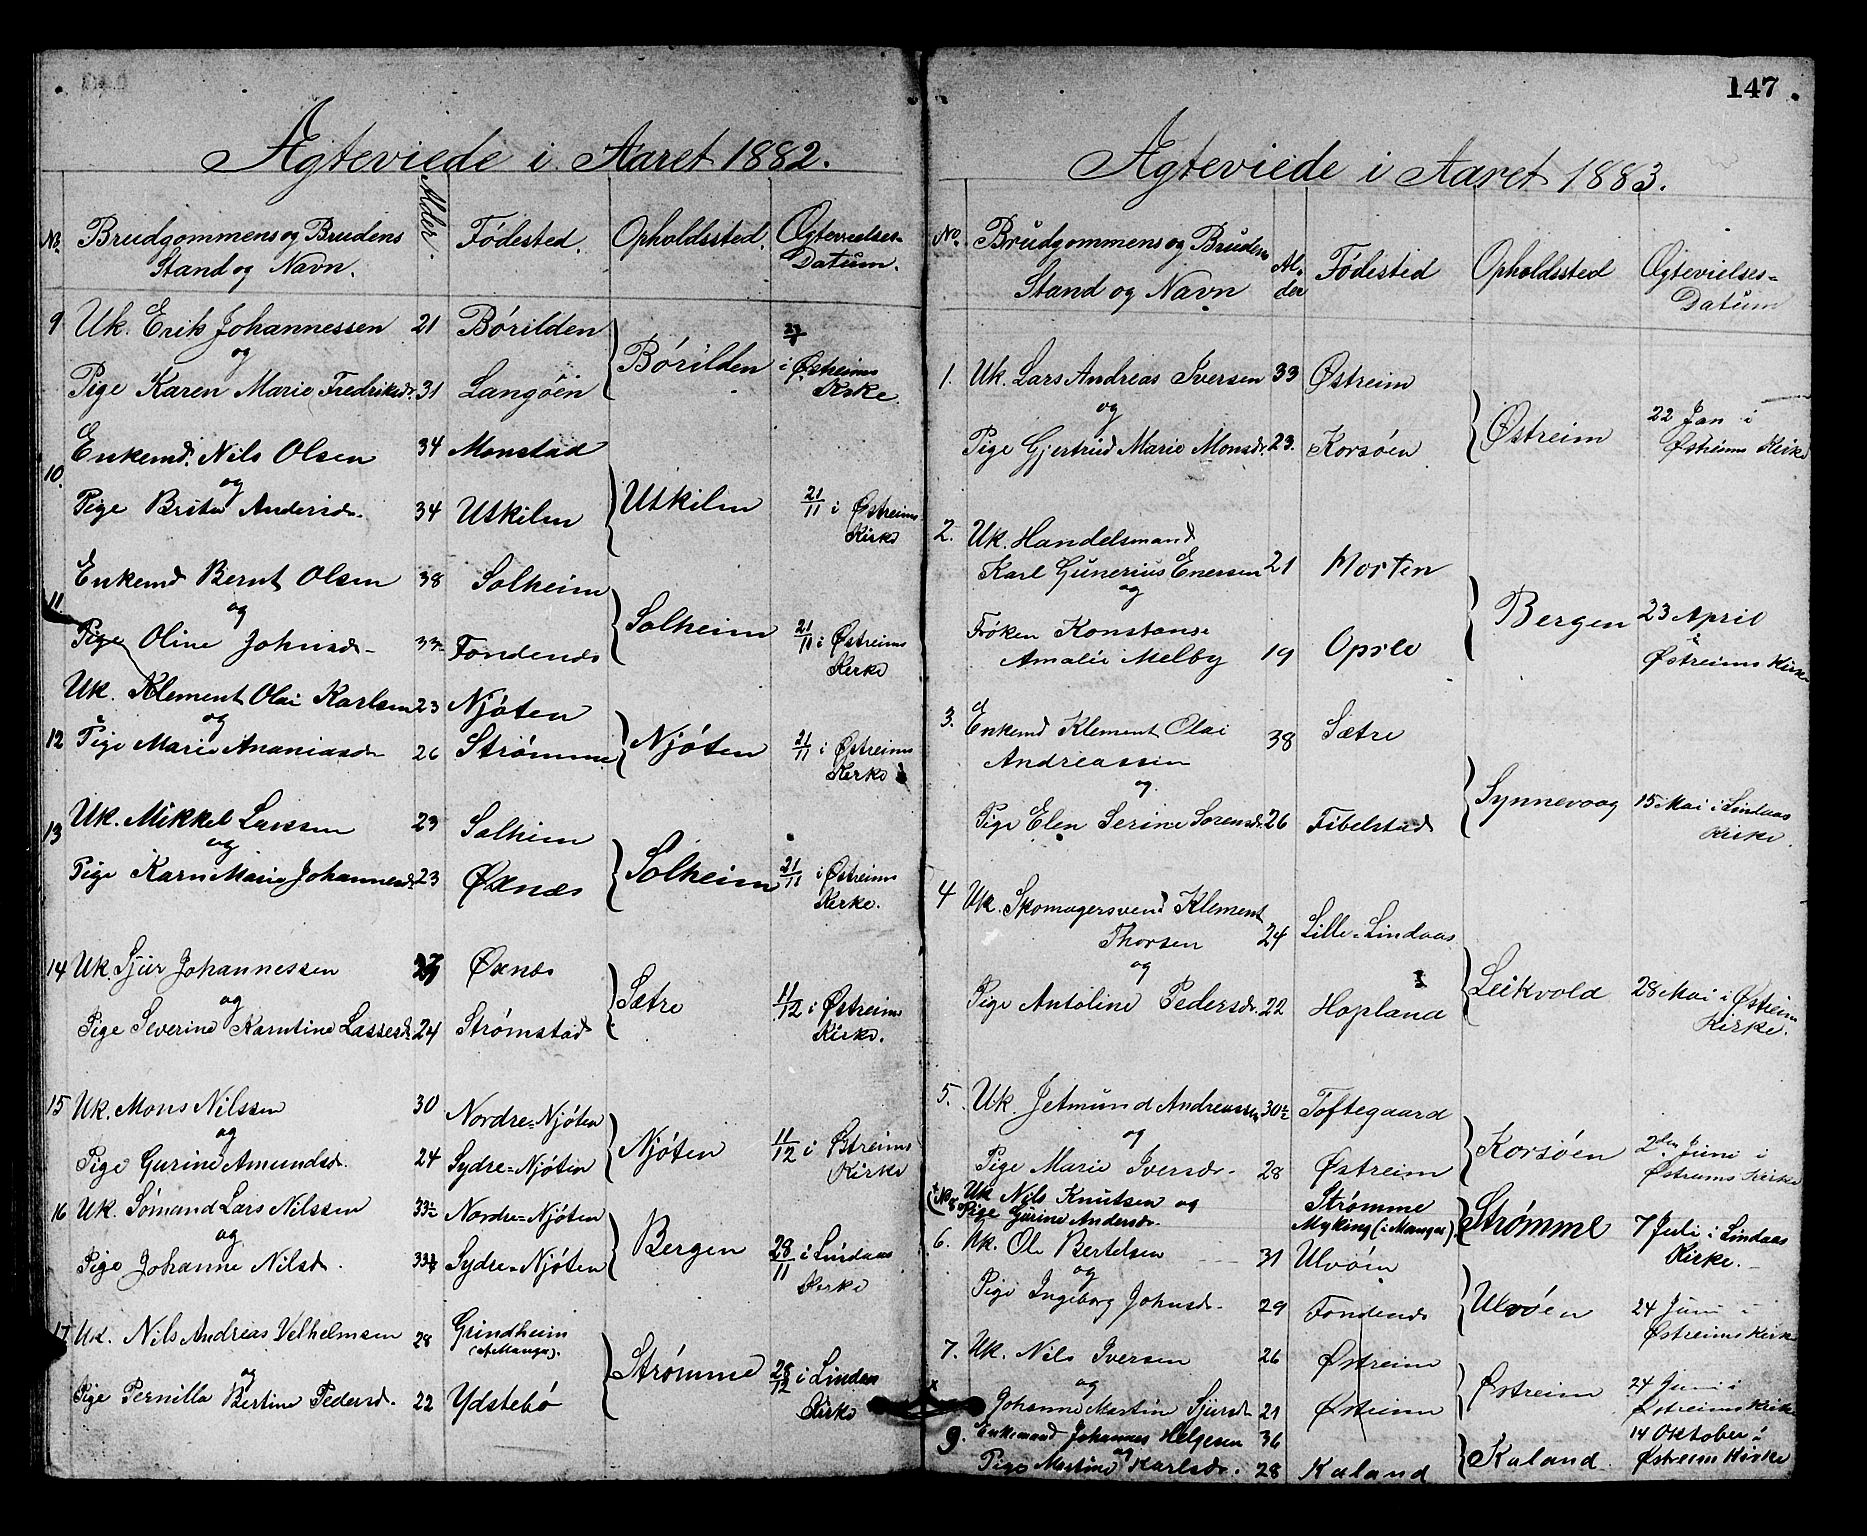 Ægteviede i Aaret 1882.
No. Brudgommens og Brudens Stand og Navn. Alder. Fødested. Opholdssted. Ægtevielses-Datum.
9 Uk. Erik Johannessen 21 Børilden
og } Børilden i Østreims Kirke
Pige Karen Marie Fredriksd. 31 Langøen
10. Enkemd. Nils Olsen 34 Monstad
og } Utkilen 21/11 i Østreims Kirke
Pige Brita Andersd. 34 Utkilen
11. Enkemd Bernt Olsen 38 Solheim
og } Solheim 21/11 i Østreims Kirke
Pige Oline Johnsd. 33 Fondenes
12 Uk. Klement Olai Karlsen 23 Njøten
og } Njøten 21/11 i Østreims Kirke
Pige Marie Ananiasd. 26 Strømme
13 Uk. Mikkel Larssen 23 Solheim
og } Solheim 21/11 i Østreims Kirke.
Pige Karn Marie Johannesd. 23 Øxnæs
14 Uk. Sjur Johannessen 27 Øxnæs
og } Sætre 11/12 i Østreims Kirke.
Pige Severine Karntine Lassesd. 24 Strømstad
15 Uk. Mons Nilssen 30 Nordre=Njøten
og } Njøten 11/12 i Østreims Kirke
Pige Gurine Amundsd. 24 Sydre=Njøten
16 Uk. Sømand Lars Nilssen 33½ Nordre=Njøten
og } Bergen 28/11 i Lindaas Kirke
Pige Johanne Nilsd. 33½ Sydre=Njøten
17 Uk. Nils Andreas Velhelmsen 28 Grindheim (af Manger).
og } Strømme 28/12 i Lindaas Kirke
Pige Pernilla Bertine Pedersd. 22 Ydstebø
147
Ægteviede i Aaret 1883.
No. Brudgommens og Brudens Stand og Navn Alder Fødested Opholdssted Ægtevielses=Datum
1. Uk. Lars Andreas Iversen 33 Østreim
og } Østreim 22 Jan i Østreims Kirke
Pige Gjertrud Marie Monsd. 23. Korsøen
2. Uk. Handelsmand
Karl Gunerius Enersen 21 Horten
og } Bergen 23 April i Østreims Kirke
Frøken Konstanse
Amalie Melby 19 Opslo
3. Enkemd Klement Olai
Andreassen 38 Sætre
og } Synnevaag 15 Mai i Lindaas Kirke.
Pige Elen Serine Sørensd. 26 Fibelstad
4 Uk. Skomagersvend Klement
Thorsen 24 Lille=Lindaas
og } Leikvold 28 Mai i Østreim Kirke.
Pige Antoline Pedersd. 22 Hopland
5. Uk. Jetmund Andreassen 30½ Toftegaard
og } Korsøen 2den Juni i Østreims Kirke
Pige Marie Iversd. 28 Østreim
(+ No 8 Uk Nils Knutsen og Strømme
Pige Gurine Andersd. Myking (i Manger) } Strømme 7 Juli i Lindaas Kirke.
6. Uk. Ole Bertelsen 31 Ulvøen
og } Ulvøen 24 Juni i Østreims Kirke
Pige Ingeborg Johnsd. 29 Fondenes
7. Uk. Nils Iversen 26 Østreim
og } Østreim 24 Juni i Østreims Kirke
Johanne Martine Sjursd. 21 Østreim
9. Enkemand Johannes Helgesen 36
og } Kaland 14 Oktober i Østreim Kirke
Pige Martine Karlsd. 28 Kaland